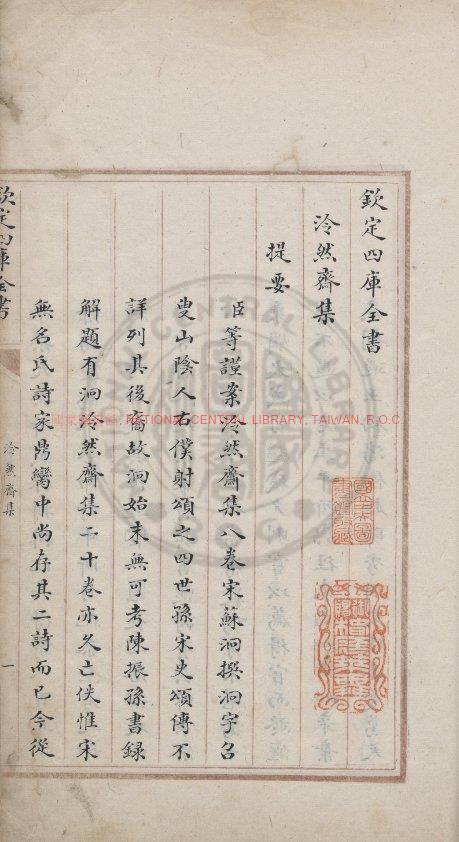 欽定四庫全書
泠然齋集
提要
臣等謹案泠然齋集八卷宋蘇泂撰泂字召
叟山陰人右僕射頌之四世孫宋史頌傳不
詳列其後裔故泂始末無可考陳振孫書録
解題有泂泠然齋集二十卷亦久亡佚惟宋
無名氏詩家鼎臠中尚存其二詩而已今從
欽定四庫全書
泠然齋集
一
國家圖書館 NATIONAL CENTRAL LIBRARY, TAIWAN, R.O.C.